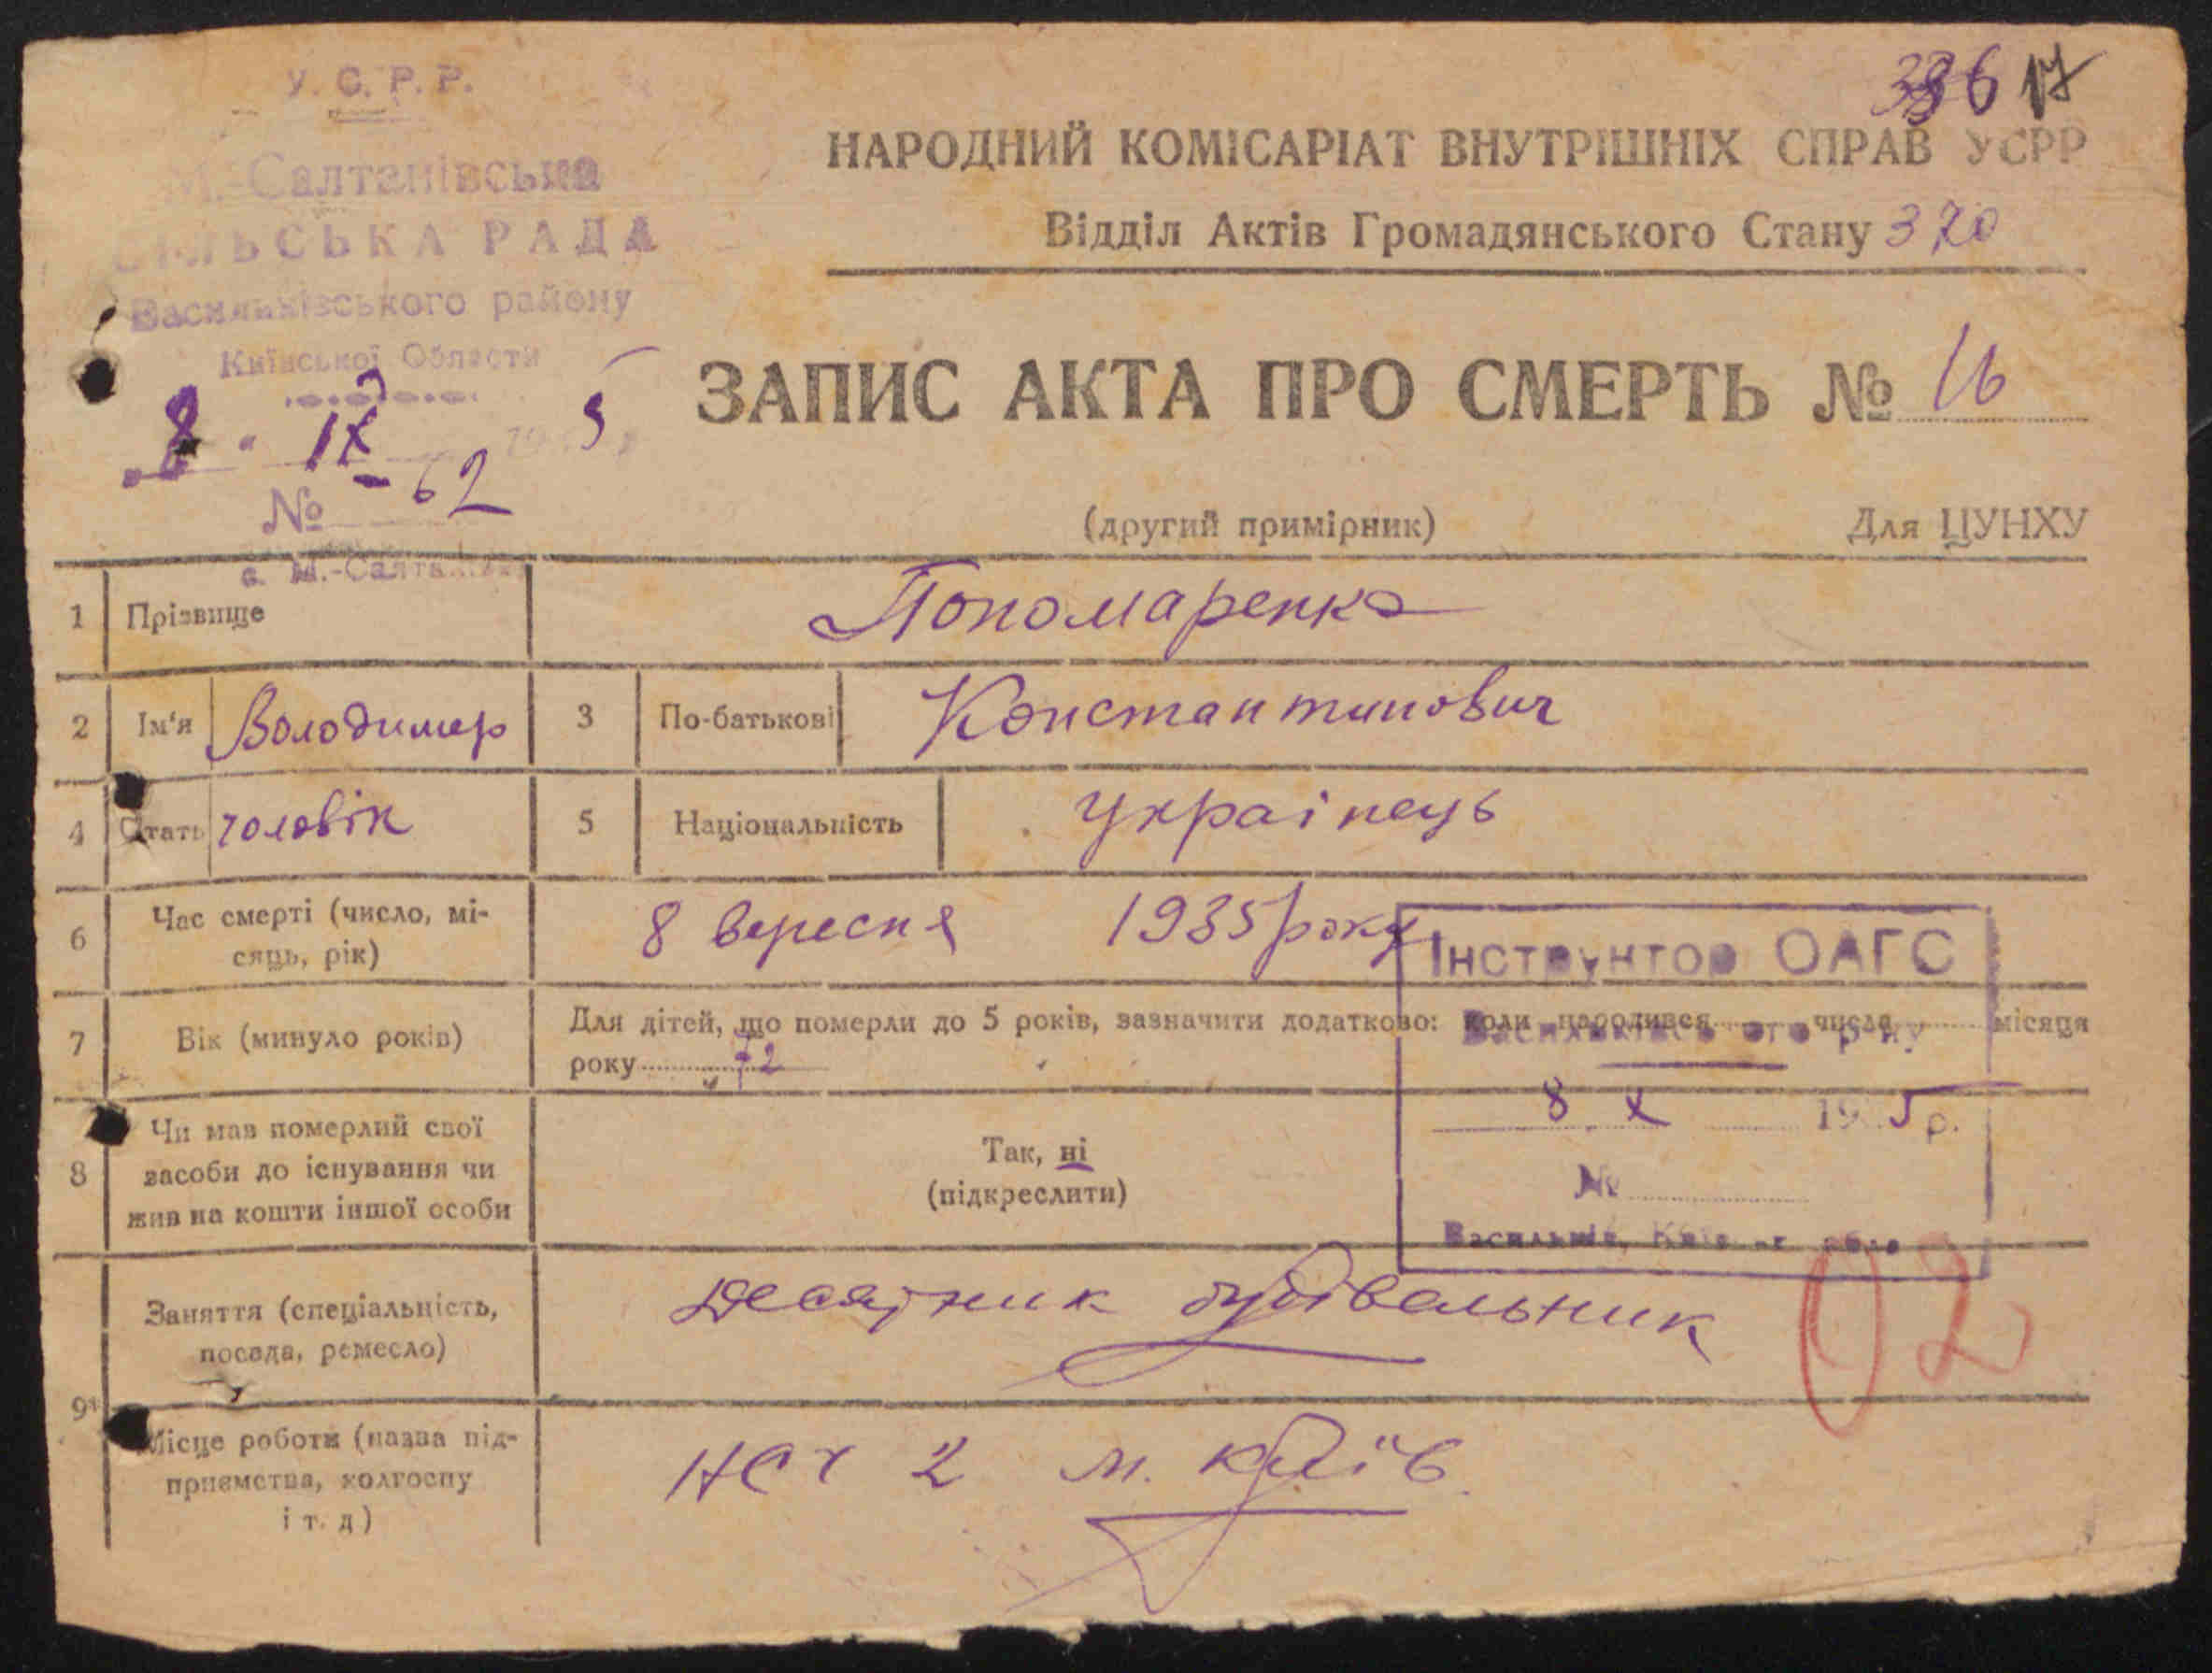 У. С. Р. Р.
М.-Салтанівська
СІЛЬСЬКА РАДА
Васильківського району
Київської Області
8 IX 5
№ 62
с. М.-Салтанівка
17
НАРОДНИЙ КОМІСАРІАТ ВНУТРІШНІХ СПРАВ УСРР
Відділ Актів Громадянського Стану 320
ЗАПИС АКТА ПРО СМЕРТЬ № 16
(другий примірник) Для ЦУНХУ
1 Прізвище Пономаренко
2 Ім'я Володимер 3 По-батькові Константинович
4 Стать чоловік 5 Національність українець
6 Час смерті (число, мі-
сяць, рік) 8 вересня 1935 року
Інструктор ОАГС
Васильківського р-ну
8 X 19 5 р.
№
Васильків, Київ
7 Вік (минуло років) Для дітей, що померли до 5 років, зазначити додатково: коли народився числа місяця
року 72
8 Чи мав померлий свої
засоби до існування чи
жив на кошти іншої особи
Так, ні
(підкреслити)
9 Заняття (спеціальність,
посада, ремесло) Десятник будівельник
02
Місце роботи (назва під-
приємства, колгоспу
і т. д) 2 м. Київ.